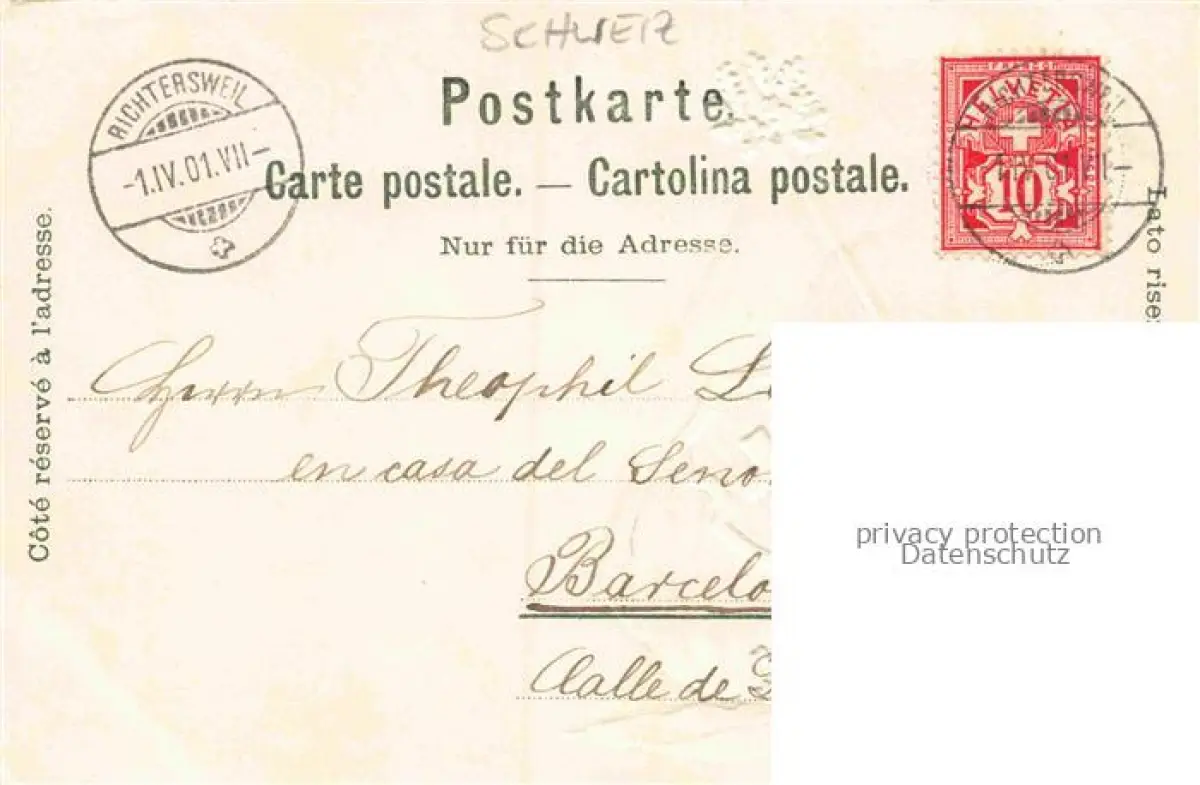 SCHWEIZ
RICHTERSWEIL
-1.IV.01.VII-
Postkarte.
Carte postale. — Cartolina postale.
Nur für die Adresse.
FRANCO
HELVETIA
10
Côté réservé à l'adresse.
Lato riser
Herrn Theophil
en casa del Seno
Barcelo
Calle de
privacy protection
Datenschutz